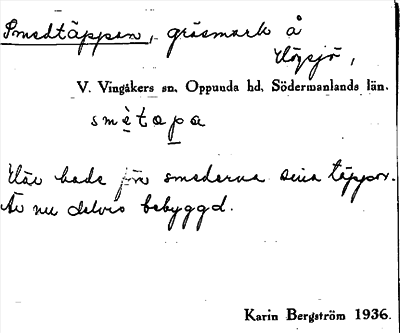 Smedtäppan, gräsmark å
Högsjö,
V. Vingåkers sn, Oppunda hd, Södermanlands län.
smètapa
Här hade förr smederna sina täppor.
Är nu delvis bebyggd.
Karin Bergström 1936.